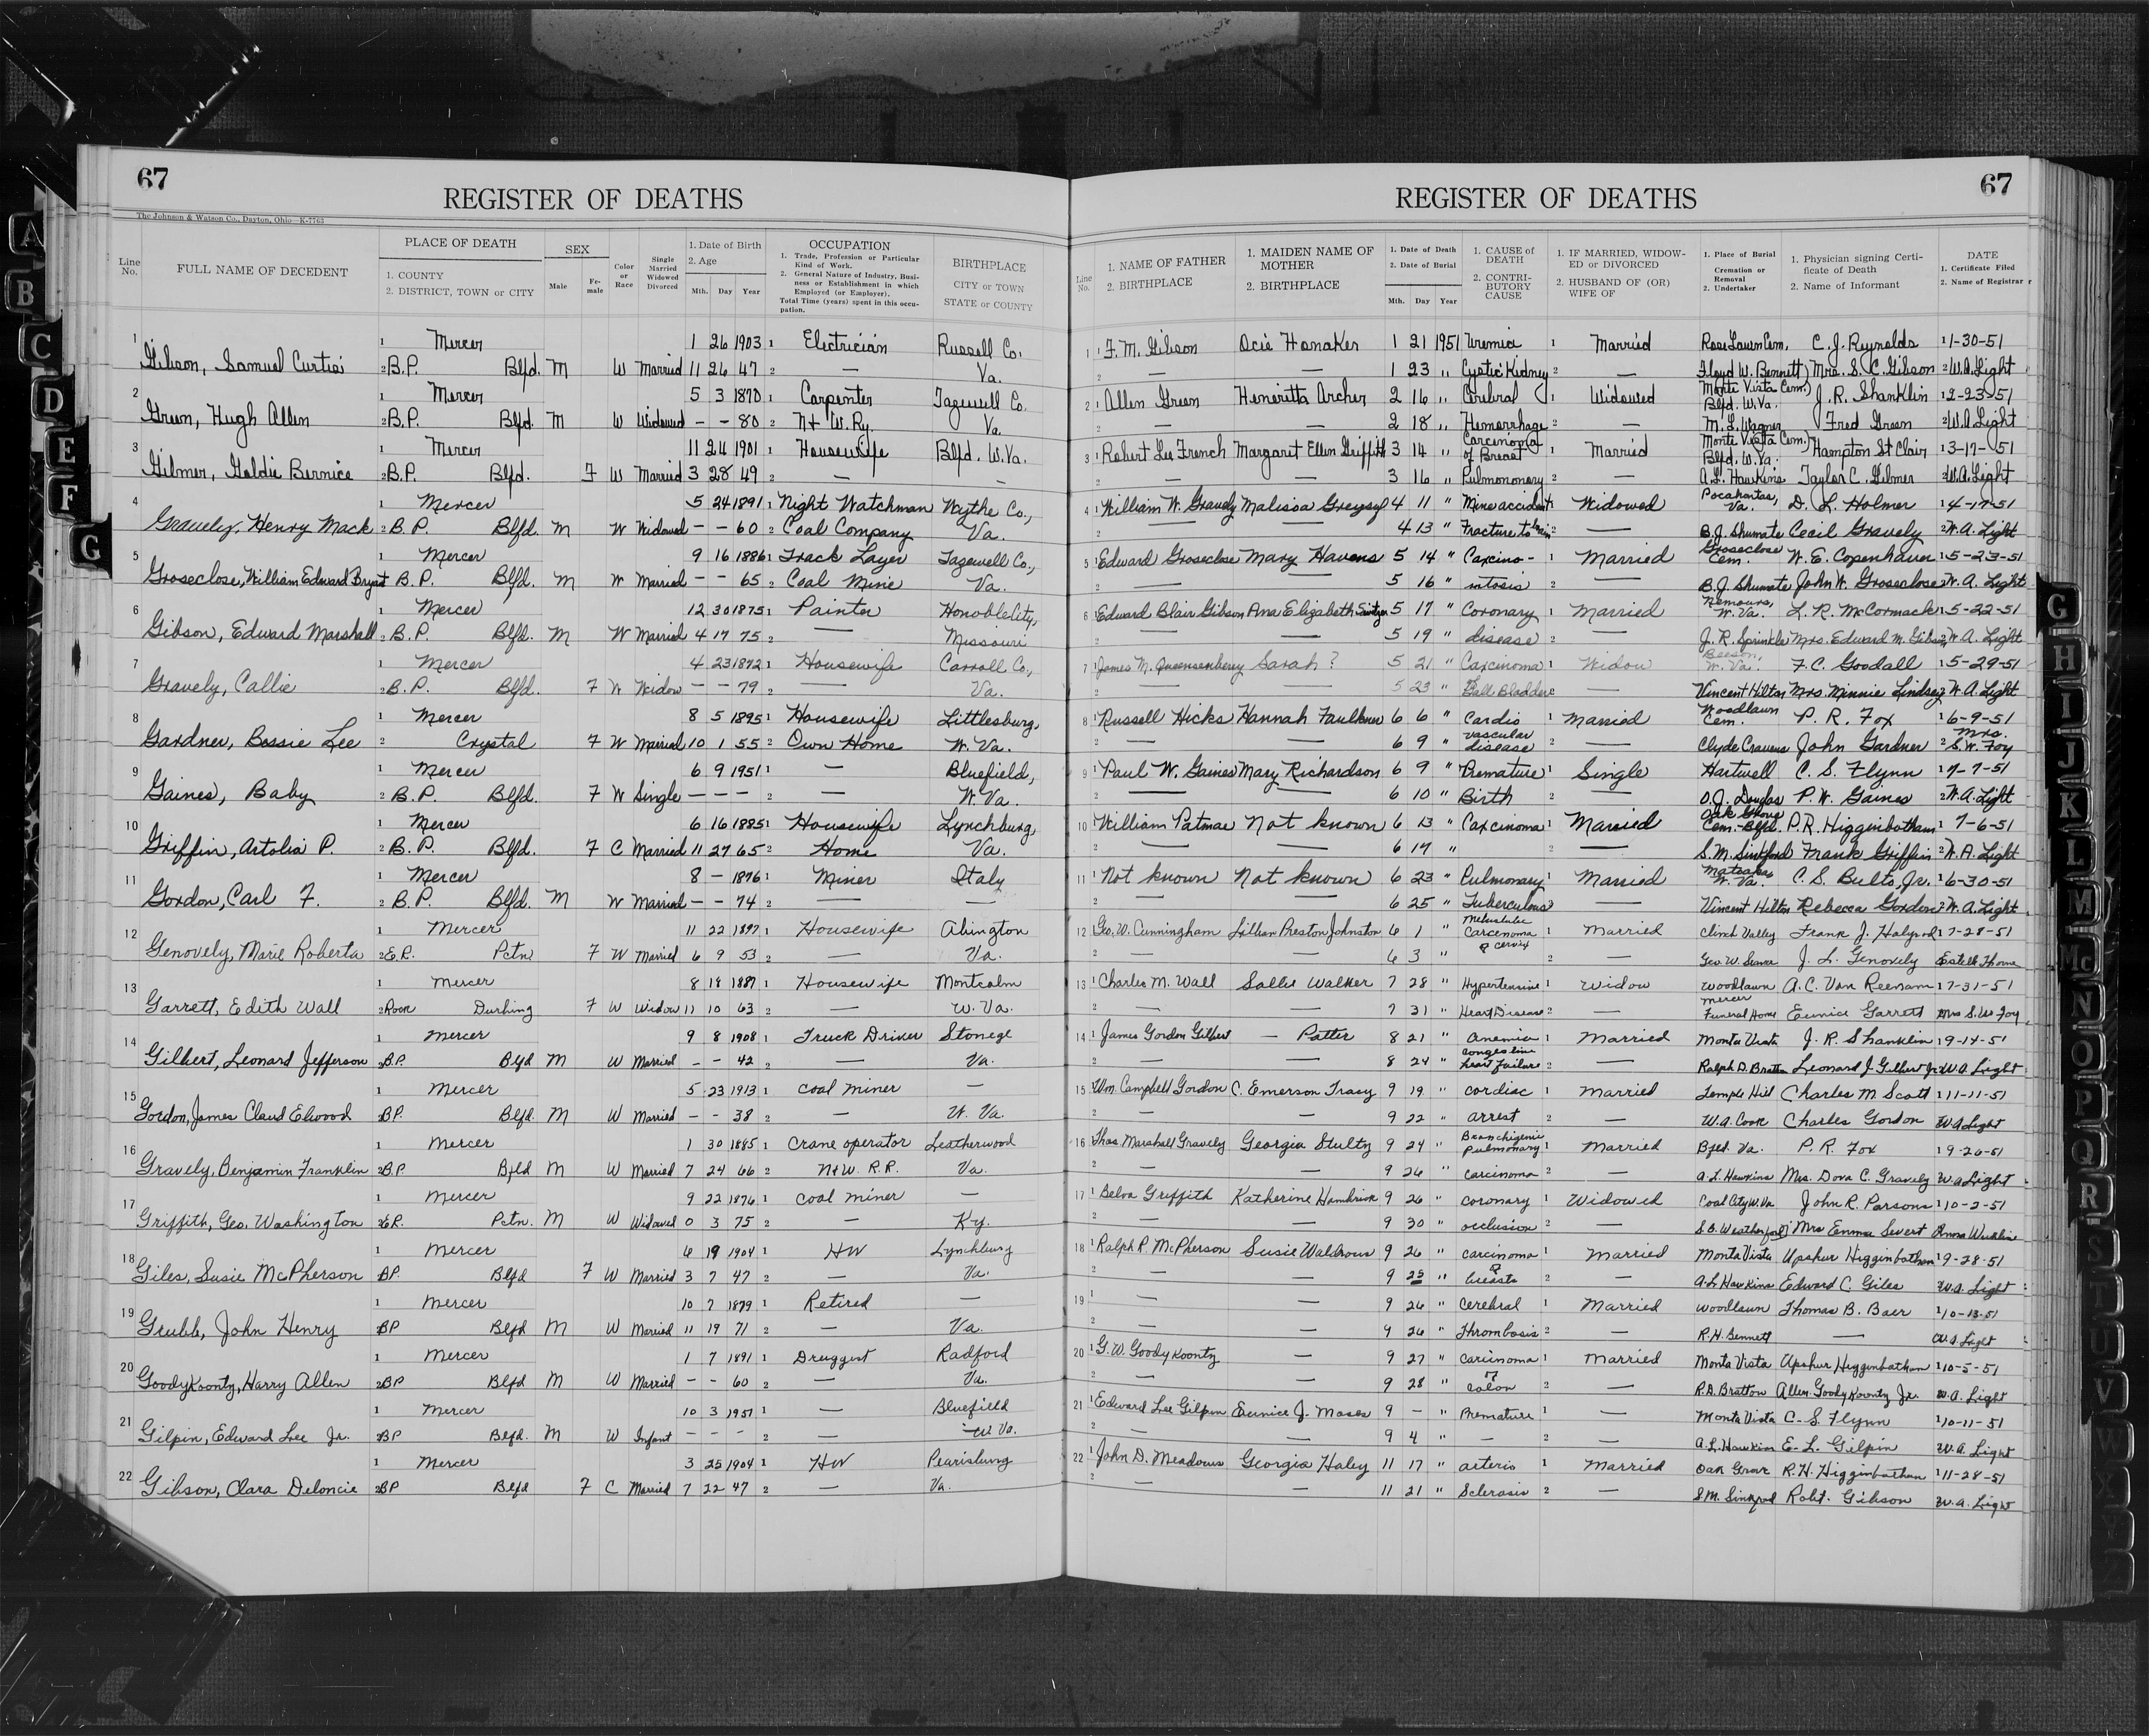 67
REGISTER OF DEATHS
The Johnson & Watson Co., Dayton, Ohio K-7763
Line No. FULL NAME OF DECEDENT PLACE OF DEATH 1. COUNTY 2. DISTRICT, TOWN or CITY SEX Male Female Color or Race Single Married Widowed Divorced 1. Date of Birth 2. Age Mth. Day Year OCCUPATION 1. Trade, Profession or Particular Kind of Work. 2. General Nature of Industry, Business or Establishment in which Employed (or Employer). Total Time (years) spent in this occupation. BIRTHPLACE CITY or TOWN STATE or COUNTY
1 1 Mercer 1 26 1903 1 Electrician Russell Co.
Gibson, Samuel Curtis 2 B.P. Blfd. M W Married 11 26 47 2 — Va.
2 1 Mercer 5 3 1870 1 Carpenter Tazewell Co.
Green, Hugh Allen 2 B.P. Blfd. M W Widowed – – 80 2 N+W.Ry. Va.
3 1 Mercer 11 24 1901 1 Housewife Blfd. W.Va.
Gilmer, Goldie Bernice 2 B.P. Blfd. F W Married 3 28 49 2 — —
4 1 Mercer 5 24 1891 1 Night Watchman Wythe Co.,
Gravely, Henry Mack 2 B.P. Blfd. M W Widowed – – 60 2 Coal Company Va.
5 1 Mercer 9 16 1886 1 Track Layer Tazewell Co.,
Groseclose, William Edward Bryant 2 B.P. Blfd. M W Married – – 65 2 Coal Mine Va.
6 1 Mercer 12 30 1875 1 Painter
Gibson, Edward Marshall 2 B.P. Blfd. M W Married 4 17 75 2 — Missouri
7 1 Mercer 4 23 1872 1 Housewife Carroll Co.,
Gravely, Callie 2 B.P. Blfd. F W Widow – – 79 2 — Va.
8 1 Mercer 8 5 1895 1 Housewife Littlesburg,
Gardner, Bessie Lee 2 Crystal F W Married 10 1 55 2 Own Home W. Va.
9 1 Mercer 6 9 1951 1 — Bluefield,
Gaines, Baby 2 B.P. Blfd. F W Single – – – 2 — W.Va.
10 1 Mercer 6 16 1885 1 Housewife Lynchburg,
Griffin, Artolia P. 2 B.P. Blfd. F C Married 11 27 65 2 Home Va.
11 1 Mercer 8 – 1876 1 Miner Italy
Gordon, Carl F. 2 B.P. Blfd. M W Married – – 74 2 — —
12 1 Mercer 11 22 1897 1 Housewife Abington
Genovely, Marie Roberta 2 E.R. Pctn. F W Married 6 9 53 2 — Va.
13 1 Mercer 8 18 1887 1 Housewife Montcalm
Garrett, Edith Wall 2 Rock Duhring F W Widow 11 10 63 2 — W. Va.
14 1 Mercer 9 8 1908 1 Truck Driver Stonege
Gilbert, Leonard Jefferson 2 B.P. Blfd M W Married – – 42 2 — Va.
15 1 Mercer 5 23 1913 1 Coal miner —
Gordon, James Claud Elwood 2 BP. Blfd. M W Married – – 38 2 — W. Va.
16 1 Mercer 1 30 1885 1 Crane operator Leatherwood
Gravely, Benjamin Franklin 2 BP Blfd M W Married 7 24 66 2 N+W. R.R. Va.
17 1 Mercer 9 22 1876 1 Coal miner —
Griffith, Geo. Washington 2 E.R. Pctn. M W Widowed 0 3 75 2 — Ky.
18 1 Mercer 6 19 1904 1 HW Lynchburg
Giles, Susie McPherson 2 BP. Blfd F W Married 3 7 47 2 — Va.
19 1 Mercer 10 7 1879 1 Retired —
Grubb, John Henry 2 BP Blfd M W Married 11 19 71 2 — Va.
20 1 Mercer 1 7 1891 1 Druggist Radford
Goodykoontz, Harry Allen 2 BP Blfd M W Married – – 60 2 — Va.
21 1 Mercer 10 3 1951 1 — Bluefield
Gilpin, Edward Lee Jr. 2 BP Blfd. M W Infant – – – 2 — W. Va.
22 1 Mercer 3 25 1904 1 HW Pearisburg
Gibson, Clara Deloncie 2 BP Blfd F C Married 7 22 47 2 — Va.
67
REGISTER OF DEATHS
Line No. 1. NAME OF FATHER 2. BIRTHPLACE 1. MAIDEN NAME OF MOTHER 2. BIRTHPLACE 1. Date of Death 2. Date of Burial Mth. Day Year 1. CAUSE of DEATH 2. CONTRIBUTORY CAUSE 1. IF MARRIED, WIDOWED or DIVORCED 2. HUSBAND OF (OR) WIFE OF 1. Place of Burial Cremation or Removal 2. Undertaker 1. Physician signing Certificate of Death 2. Name of Informant DATE 1. Certificate Filed 2. Name of Registrar
1 1 F. M. Gibson Ocie Honaker 1 21 1951 Uremia 1 Married Rose Lawn Cem. C. J. Reynolds 1 1-30-51
2 — — 1 23 " Cystic Kidney 2 — Floyd W. Bennett Mrs. S. C. Gibson 2 W.A. Light
2 1 Allen Green Heneritta Archer 2 16 " Cerebral 1 Widowed Monte Vista Cem. Blfd. W.Va. J. R. Shanklin 1 2-23-51
2 — — 2 18 " Hemorrhage 2 — M. L. Wagner Fred Green 2 W.A. Light
3 1 Robert Lee French Margaret Ellen Griffith 3 14 " Carcinoma of Breast 1 Married Monte Vista Cem. Blfd. W.Va. Hampton St Clair 1 3-17-51
2 — — 3 16 " Pulmonary 2 — A. L. Hawkins Taylor C. Gilmer 2 W.A. Light
4 1 William W. Gravely Malissa 4 11 " Mine accident 1 Widowed Pocahontas, Va. D. L. Holmer 1 4-17-51
2 — — 4 13 " Fracture to 2 — B. J. Shumate Cecil Gravely 2 W. A. Light
5 1 Edward Groseclose Mary Havens 5 14 " Carcino- 1 Married Groseclose Cem. W. E. Copenhaver 1 5-23-51
2 — — 5 16 " mtosis 2 — B. J. Shumate John W. Groseclose 2 W. A. Light
6 1 Edward Blair Gibson Ana Elizabeth 5 17 " Coronary 1 Married Nemours, W. Va. L. R. McCormack 1 5-22-51
2 — — 5 19 " disease 2 — J. R. Sprinkle Mrs. Edward M. Gibson 2 W. A. Light
7 1 James M. Queensenberry Sarah ? 5 21 " Carcinoma 1 Widow Beeson, W. Va. F. C. Goodall 1 5-29-51
2 — — 5 23 " of Gall Bladder 2 — Vincent Hilton Mrs Minnie Lindsey 2 W. A. Light
8 1 Russell Hicks Hannah Faulkner 6 6 " Cardio 1 Married Woodlawn Cem. P. R. Fox 1 6-9-51
2 — — 6 9 " vascular disease 2 — Clyde Cravens John Gardner 2 Mrs. S. W. Foy
9 1 Paul W. Gaines Mary Richardson 6 9 " Premature 1 Single Hartwell C. S. Flynn 1 7-7-51
2 — — 6 10 " Birth 2 — O. J. Douglas P. W. Gaines 2 W. A. Light
10 1 William Patmae Not known 6 13 " Carcinoma 1 Married Oak Grove Cem.-Blfd. P. R. Higginbotham 1 7-6-51
2 — — 6 17 " 2 — S. M. Sinkford Frank Griffin 2 W. A. Light
11 1 Not known Not known 6 23 " Pulmonary 1 Married Matoaka W. Va. C. S. Bults, Jr. 1 6-30-51
2 — — 6 25 " Tuberculous 2 — Vincent Hilton Rebecca Gordon 2 W. A. Light
12 1 Geo. W. Cunningham Lillian Preston Johnston 6 1 " Carcenoma of cervix 1 Married Clinch Valley Frank J. 1 7-28-51
2 — — 6 3 " 2 — Geo. W. J. L. Genovely Estelle Thorne
13 1 Charlie M. Wall Sallie Walker 7 28 " Hypertensive 1 Widow Woodlawn A. C. Van Reenam 1 7-31-51
2 — — 7 31 " Heart Disease 2 — Mercer Funeral Home Eunice Garrett Mrs S. W. Foy
14 1 James Gordon Gilbert — Potter 8 21 " anemia 1 Married Monta Vista J. R. Shanklin 1 9-14-51
2 — — 8 24 " congestive heart failure 2 — Ralph D. Bratton Leonard J. Gilbert Jr. W.A. Light
15 1 Wm. Campbell Gordon C. Emerson Tracy 9 19 " cardiac 1 Married Temple Hill Charles M Scott 1 11-11-51
2 — — 9 22 " arrest 2 — W. A. Cook Charles Gordon W A Light
16 1 Thos. Marshall Gravely Georgia Stultz 9 24 " Bronchigenic Pulmonary 1 Married Bfld. Va. P. R. Fox 1 9-26-51
2 — — 9 26 " carcinoma 2 — A. L. Hawkins Mrs. Dova C. Gravely W. A. Light
17 1 Belva Griffith Katherine Hambrick 9 26 " coronary 1 Widowed Coal City W. Va. John R. Parsons 1 10-2-51
2 — — 9 30 " occlusion 2 — Mrs Emma Severt
18 1 Ralph P. McPherson Susie Waldrow 9 26 " carcinoma 1 Married Monta Vista Upshur Higginbotham 1 9-28-51
2 — — 9 28 " of breasts 2 — A. L. Hawkins Edward C. Giles W.A. Light
19 1 — — 9 26 " Cerebral 1 Married Woodlawn Thomas B. Baer 1 10-13-51
2 — — 9 26 " Thrombosis 2 — R. H. Bennett — W. A. Light
20 1 G. W. Goodykoontz — 9 27 " carcinoma 1 Married Monta Vista Upshur Higginbotham 1 10-5-51
2 — — 9 28 " of colon 2 — R.D. Bratton Allen Goodykoontz Jr. W. A. Light
21 1 Edward Lee Gilpin Eunice J. Moses 9 – " Premature 1 — Monta Vista C. S. Flynn 1 10-11-51
2 — — 9 4 " — 2 — A. L. Hawkins E. L. Gilpin W. A. Light
22 1 John D. Meadows Georgia Haley 11 17 " arterio 1 Married Oak Grove R. H. Higginbotham 1 11-28-51
2 — — 11 21 " Sclerosis 2 — S. M. Sinkford Robt. Gibson W. A. Light
A
B
C
D
E
F
G
G
H
I
J
K
L
M
Mc
N
O
P
Q
R
S
T
U
V
W
X
Y
Z